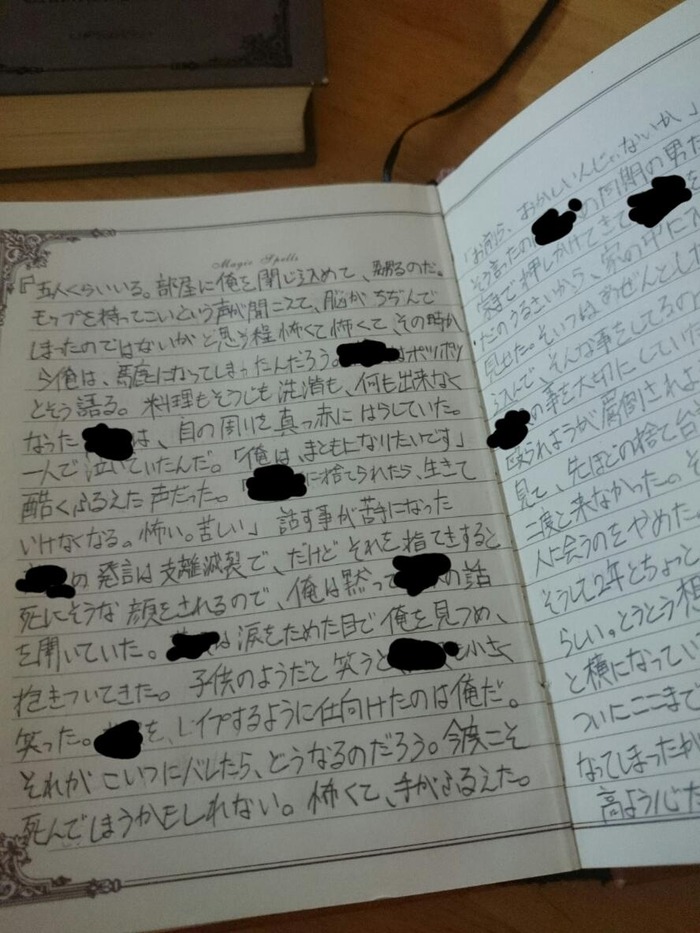 Magic Spells
『五人くらいいる。部屋に俺を閉じ込めて、嬲るのだ。
モップを持ってこいという声が聞こえて、脳がちぢんで
しまったのではないかと思う程怖くて怖くて、その時か
ら俺は、馬鹿になってしまったんだろう。はポツポツ
とそう語る。料理もそうじも洗濯も、何も出来なく
なったは、目の周りを真っ赤にはらしていた。
一人で泣いていたんだ。「俺は、まともになりたいです」
酷くふるえた声だった。「に捨てられたら、生きて
いけなくなる。怖い。苦しい」話す事が苦手になった
の発言は支離滅裂で、だけどそれを指てきすると
死にそうな顔をされるので、俺は黙っての話
を聞いていた。は涙をためた目で俺を見つめ、
抱きついてきた。子供のようだと笑うと、も小さく
笑った。を、レイプするように仕向けたのは俺だ。
それがこいつにバレたら、どうなるのだろう。今度こそ
死んでしまうかもしれない。怖くて、手がふるえた。
「お前ら、おかしいんじゃないか」
そう言ったのはの同期の男だ
家まで押しかけてきてを
だのうるさいから、家の中に
見せた。そいつはあぜんとし
込んで、そんな事をしてるの
の事を大切にしてい
殴られようが罵倒されよ
見て、先ほどの捨て台
二度と来なかった。そ
人に会うのをやめた。
そうして2年とちょっと
らしい。とうとう
と横になってい
ついにここまで
なってしまったが
高ようした